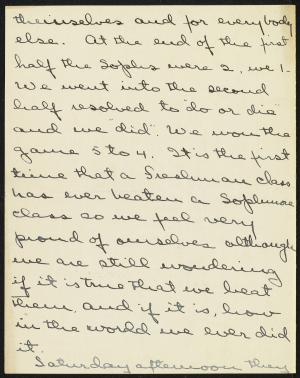 themselves and for everybody
else. At the end of the first
half the Sophs were 2, we 1.
We went into the second
half resolved to "do or die"
and we "did". We won the
game 5 to 4. It is the first
time that a Freshman class
has ever beaten a Sophmore
class so we feel very
proud of ourselves although
we are still wondering
if it is true that we beat
them, and if it is, how
in the world we ever did
it.
Saturday afternoon they